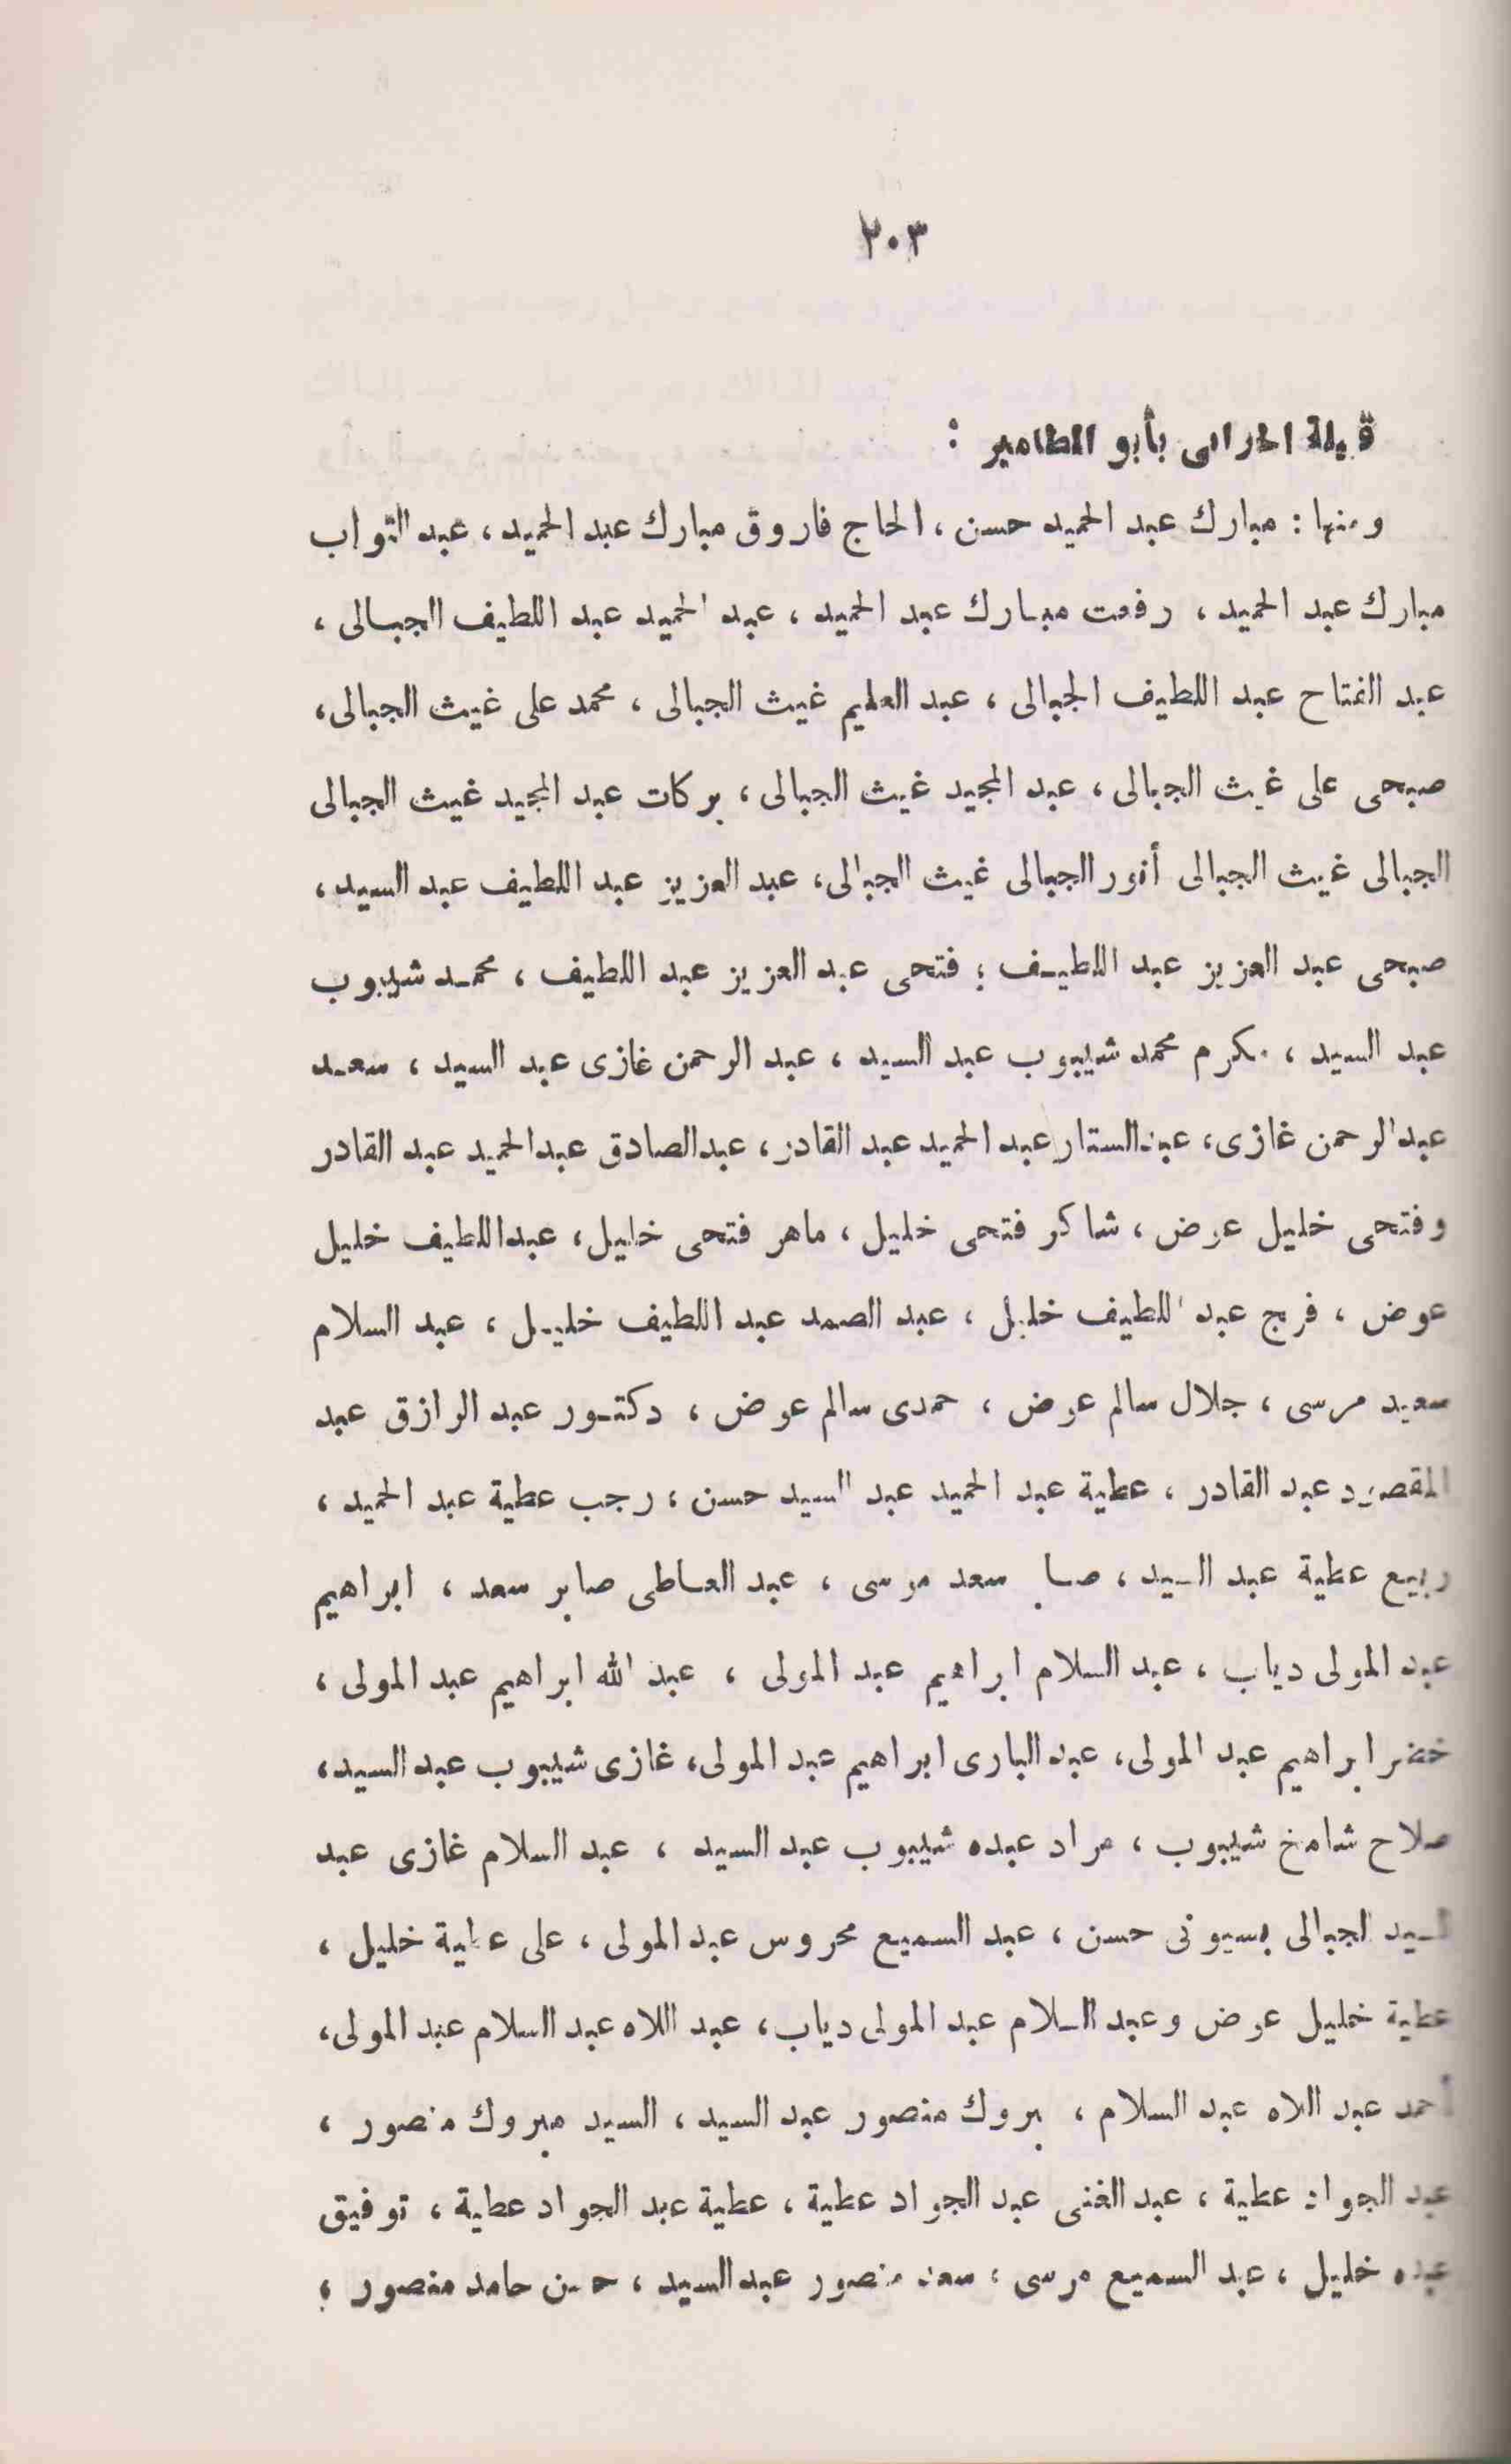 ٢٠٣
قبيلة الحرابى بأبو المطامير :
ومنها : مبارك عبد الحميد حسن ، الحاج فاروق مبارك عبد الحميد ، عبد التواب
مبارك عبد الحميد ، رفعت مبارك عبد الحميد ، عبد الحميد عبد اللطيف الجبالى ،
عبد الفتاح عبد اللطيف الجبالى ، عبد العليم غيث الجبالى ، محمد على غيث الجبالى ،
صبحى على غيث الجبالى ، عبد المجيد غيث الجبالى ، بركات عبد المجيد غيث الجبالى
الجبالى غيث الجبالى أنور الجبالى غيث الجبالى ، عبد العزيز عبد اللطيف عبد السيد ،
صبحى عبد العزيز عبد اللطيف ؛ فتحى عبد العزيز عبد اللطيف ، محمد شيبوب
عبد السيد ، مكرم محمد شيبوب عبد السيد ، عبد الرحمن غازى عبد السيد ، سعد
عبد الرحمن غازى ، عبد الستار عبد الحميد عبد القادر ، عبد الصادق عبد الحميد عبد القادر
وفتحى خليل عوض ، شاكر فتحى خليل ، ماهر فتحى خليل ، عبد اللطيف خليل
عوض ، فرج عبد اللطيف خليل ، عبد الصمد عبد اللطيف خليل ، عبد السلام
سعيد مرسى ، جلال سالم عوض ، حمدى سالم عوض ، دكتور عبد الرازق عبد
المقصود عبد القادر ، عطية عبد الحميد عبد السيد حسن ، رجب عطية عبد الحميد ،
ربيع عطية عبد السيد ، صابر سعد مرسى ، عبد العاطى صابر سعد ، ابراهيم
عبد المولى دياب ، عبد السلام ابراهيم عبد المولى ، عبد الله ابراهيم عبد المولى ،
خضر ابراهيم عبد المولى ، عبد البارى ابراهيم عبد المولى ، غازى شيبوب عبد السيد ،
صلاح شامخ شيبوب ، مراد عبده شيبوب عبد السيد ، عبد السلام غازى عبد
السيد الجبالى بسيونى حسن ، عبد السميع محروس عبد المولى ، على عطية خليل ،
عطية خليل عوض وعبد السلام عبد المولى دياب ، عبد اللاه عبد السلام عبد المولى ،
أحمد عبد اللاه عبد السلام ، مبروك منصور عبد السيد ، السيد مبروك منصور ،
عبد الجواد عطية ، عبد الغنى عبد الجواد عطية ، عطية عبد الجواد عطية ، توفيق
عبده خليل ، عبد السميع مرسى ، سعد منصور عبد السيد ، حسن حامد منصور ؛